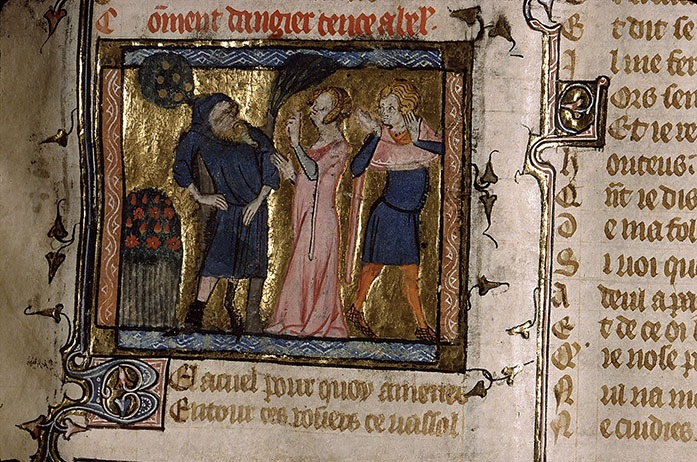 Coment dangier tence a bel.
Bel acuel pour quoy amenez
Entour ces rosiers ce vassal
t dit se
l me fer
ors sen
Et ie re
onteus.
nt ie dis
e ma fol
l uoi qu
deul a p
t de ce oi
re nose p
N ul na me
N e cuidies